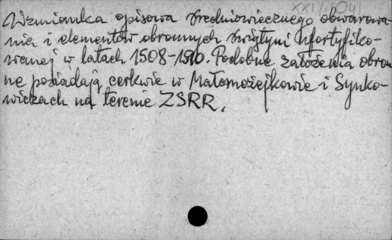 XXI/1041
Wzmianka opisowa średniowiecznego obwarowa-
nia i elementów obronnych świątyni ufortyfiko-
wanej w latach 1508-1510. Podobne założenia obron-
ne posiadają cerkwie w Małomożejkowie i Synko-
wiczach na terenie ZSRR.